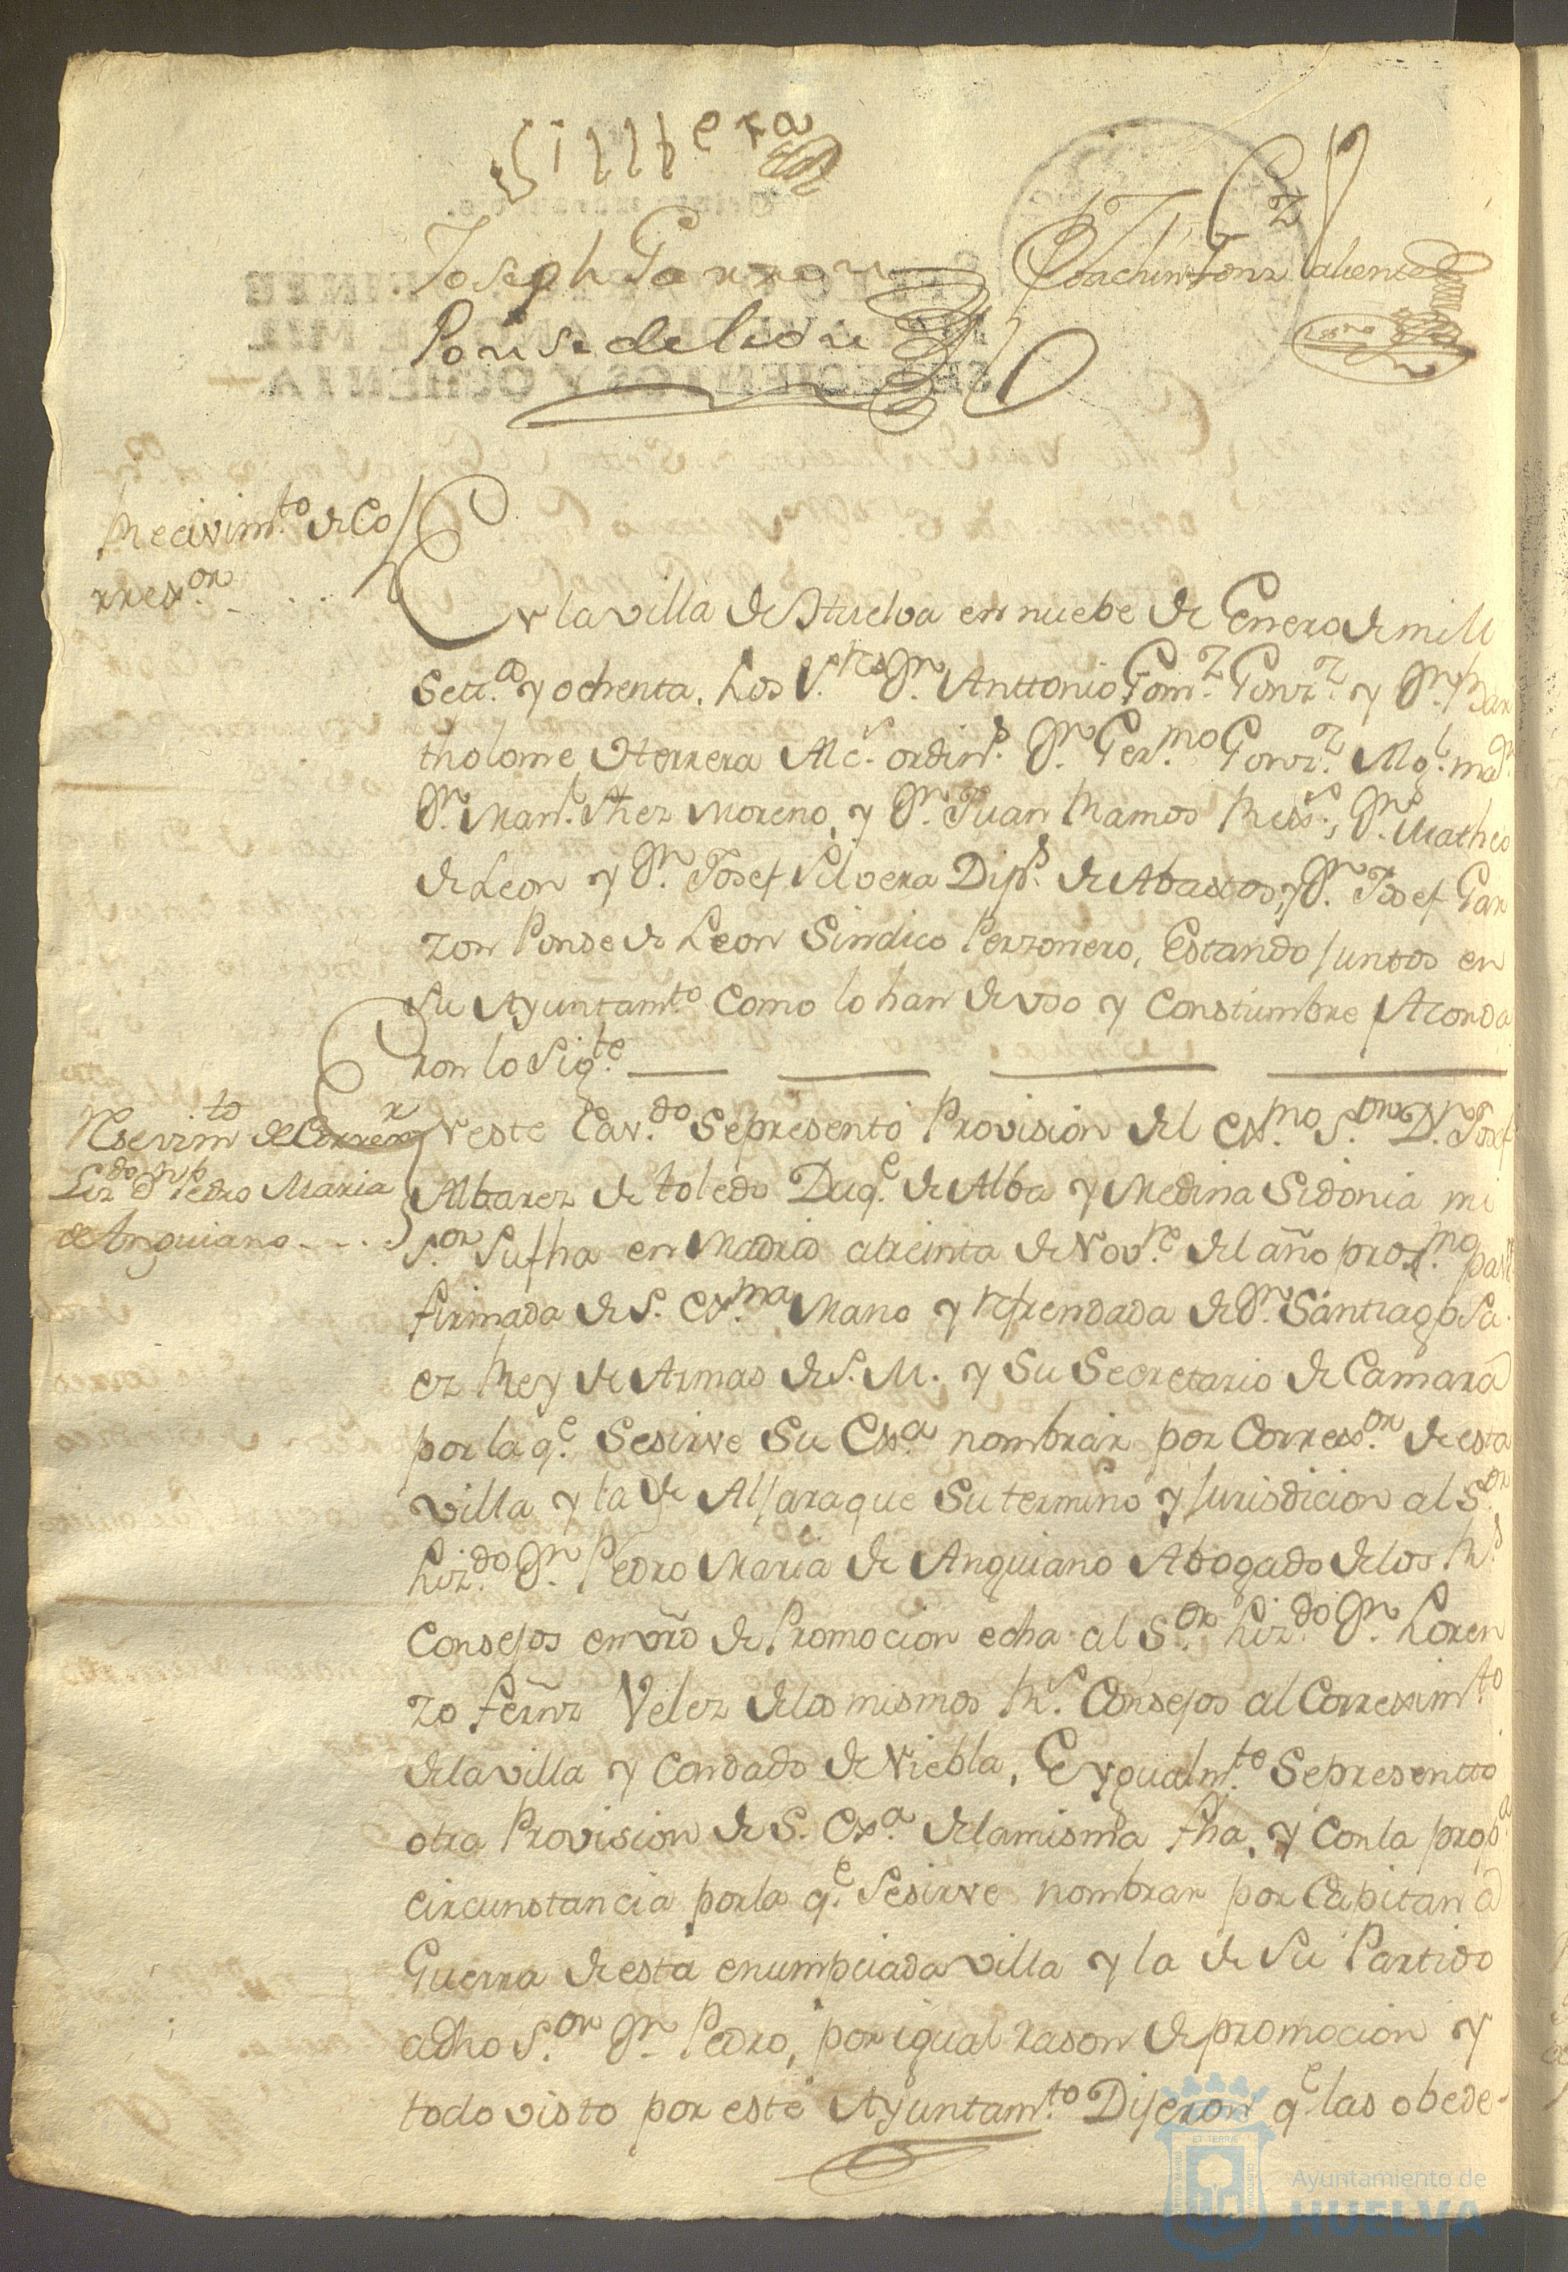 Sillbera
Joseph Garzon
Ponse de leon
Joachin Fonz Caliente
Recivim.to de Co
rrex.or
En la villa de Huelva en nuebe de Enero de mill
Sett.os y ochenta. Los S.res Dn. Anttonio Gom.z Gonz.z y Dn. Bar
tholome Herrera Alc.s ordin.s Dn. Ger.mo Gonz.z Alg.l ma.or
Dn. Man.l Shez Moreno, y Dn. Juan Ramos Rex.s, Dn. Matheo
de Leon y Dn. Josef Silvera Dip.s de Abastos, y Dn. Josef Gar
zon Ponse de Leon Sindico Perzonero, Estando Juntos en
su Ayuntam.to Como lo han de uso y Constumbre Acorda
ron lo Sig.te
Resevim.to de Correx.r
Liz.do Dn. Pedro Maria
de Anguiano
En este Cav.do Se presentó Provision del Ex.mo S.or Dn. Josef
Albarez de toledo Duq.e de Alba y Medina Sidonia mi
S.or Su fha en Madrid a treinta de Nov.re del año prox.mo pas.do
firmada de S. Ex.ma Mano y refrendada de Dn. Santiago Sa
ez Rey de Armas de S. M. y Su Secretario de Camara
por la q.e Se sirve Su Exs.a nombrar por Correx.or de esta
villa y la de Aljaraque Su termino y Jurisdicion al S.or
Liz.do Dn. Pedro Maria de Anguiano Abogado de los R.s
Consejos en vrd de Promocion echa al S.or Liz.do Dn. Loren
zo fernz Velez de los mismos R.s Consejos al Correxim.to
de la villa y Condado de Niebla. E ygualm.te Se presentto
otra Provision de S. Ex.a de la misma fha, y Con la prop.a
circunstancia por la q.e Se sirve nombrar por Capitan a
Guerra de esta enumpciada villa y la de Su Partido
a dho S.or Dn. Pedro, por igual rason de promocion y
todo visto por este Ayuntam.to Dijeron q.e las obede-
Ayuntamiento de
HUELVA